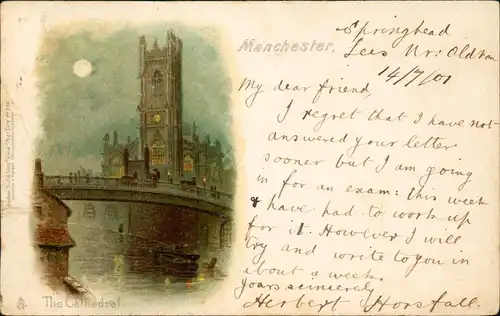 Manchester,
Springhead
Lees Nr: Oldham
14/7/01
My dear friend,
I regret that I have not
answered your letter
sooner but I am going
in for an exam: this week
& have had to work up
for it. However I will
try and write to you in
about a week.
Yours scincerely
Herbert Horsfall.
The Cathedral.